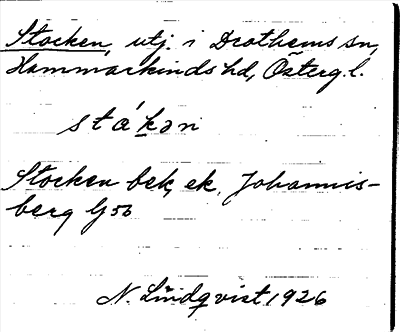 Stocken, utj. i Drothems sn,
Hammarkinds hd, Österg. l.
stákən
Stocken bek, ek. Johannis-
berg G 56
N. Lindqvist 1926